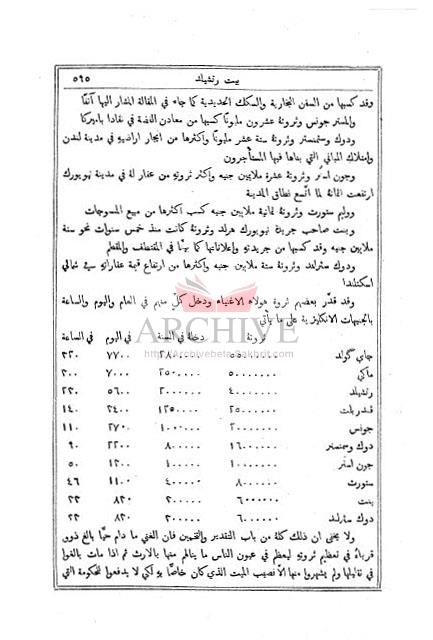 بيت رتشيلد ٥٩٥
وقد كسبها من السفن التجارية والسكك الحديدية كما جاء في المقالة المشار اليها آنفًا
والمستر جونس وثروتهُ عشرون مليونًا كسبها من معادن الفضة في نفادا باميركا
ودوك وستمنستر وثروتهُ ستة عشر مليونًا واكثرها من ايجار اراضيهِ في مدينة لندن
وامتلاك المباني التي بناها فيها المستأجرون
وجون استر وثروتهُ عشرة ملايين جنيه واكثر ثروتهِ من عقار لهُ في مدينة نيويورك
ارتفعت اثمانهُ لما اتسع نطاق المدينة
ووليم ستورت وثروتهُ ثمانية ملايين جنيه كسب اكثرها من مبيع المنسوجات
وبنت صاحب جريدة نيويورك هرلد وثروتهُ كانت منذ خمس سنوات نحو ستة
ملايين جنيه وقد كسبها من جريدتهِ وإعلاناتها كما بيَّنَّا في المقتطف والمقطم
ودوك سثرلند وثروتهُ ستة ملايين جنيه واكثرها من ارتفاع قيمة عقاراتهِ في شمالي
اسكتلندا
وقد قدَّر بعضهم ثروة هولاء الاغنياء ودخل كلٍّ منهم في العام واليوم والساعة
بالجنيهات الانكليزية على ما يأتي
ARCHIVE
http://Archivebeta.Sakhrit.com
ثروتهُ دخلهُ في السنة في اليوم في الساعة
جاي كولد ٧٧٠٠ ٣٢٠
ماكي ٥٠٠٠٠٠٠٠ ٢٥٠٠٠٠٠ ٧٠٠٠ ٣٠٠
رتشيلد ٤٠٠٠٠٠٠٠ ٢٠٠٠٠٠٠ ٥٦٠٠ ٢٣٠
فندربلت ٢٥٠٠٠٠٠٠ ١٢٥٠٠٠٠ ٣٤٠٠ ١٤٠
جونس ٢٠٠٠٠٠٠٠ ١٠٠٠٠٠٠ ٢٧٠٠ ١١٠
دوك وستمنستر ١٦٠٠٠٠٠٠ ٨٠٠٠٠٠ ٢٢٠٠ ٩٠
جون استر ١٠٠٠٠٠٠٠ ٥٠
ستورت ٨٠٠٠٠٠٠ ٤٠٠٠٠٠ ١١٠٠ ٤٦
بنت ٦٠٠٠٠٠٠ ٨٢٠
دوك سثرلند ٦٠٠٠٠٠٠ ٨٢٠
ولا يخفى ان ذلك كلهُ من باب التقدير والتخمين فان الغني ما دام حيًّا بالغ ذوو
قرباهُ في تعظيم ثروتهِ ليعظم في عيون الناس ما ينالهم منها بالارث ثم اذا مات بالغوا
في تقليلها ولم يشهروا منها الَّا نصيب الميت الذي كان خاصًّا بهِ لكي لا يدفعوا للحكومة التي